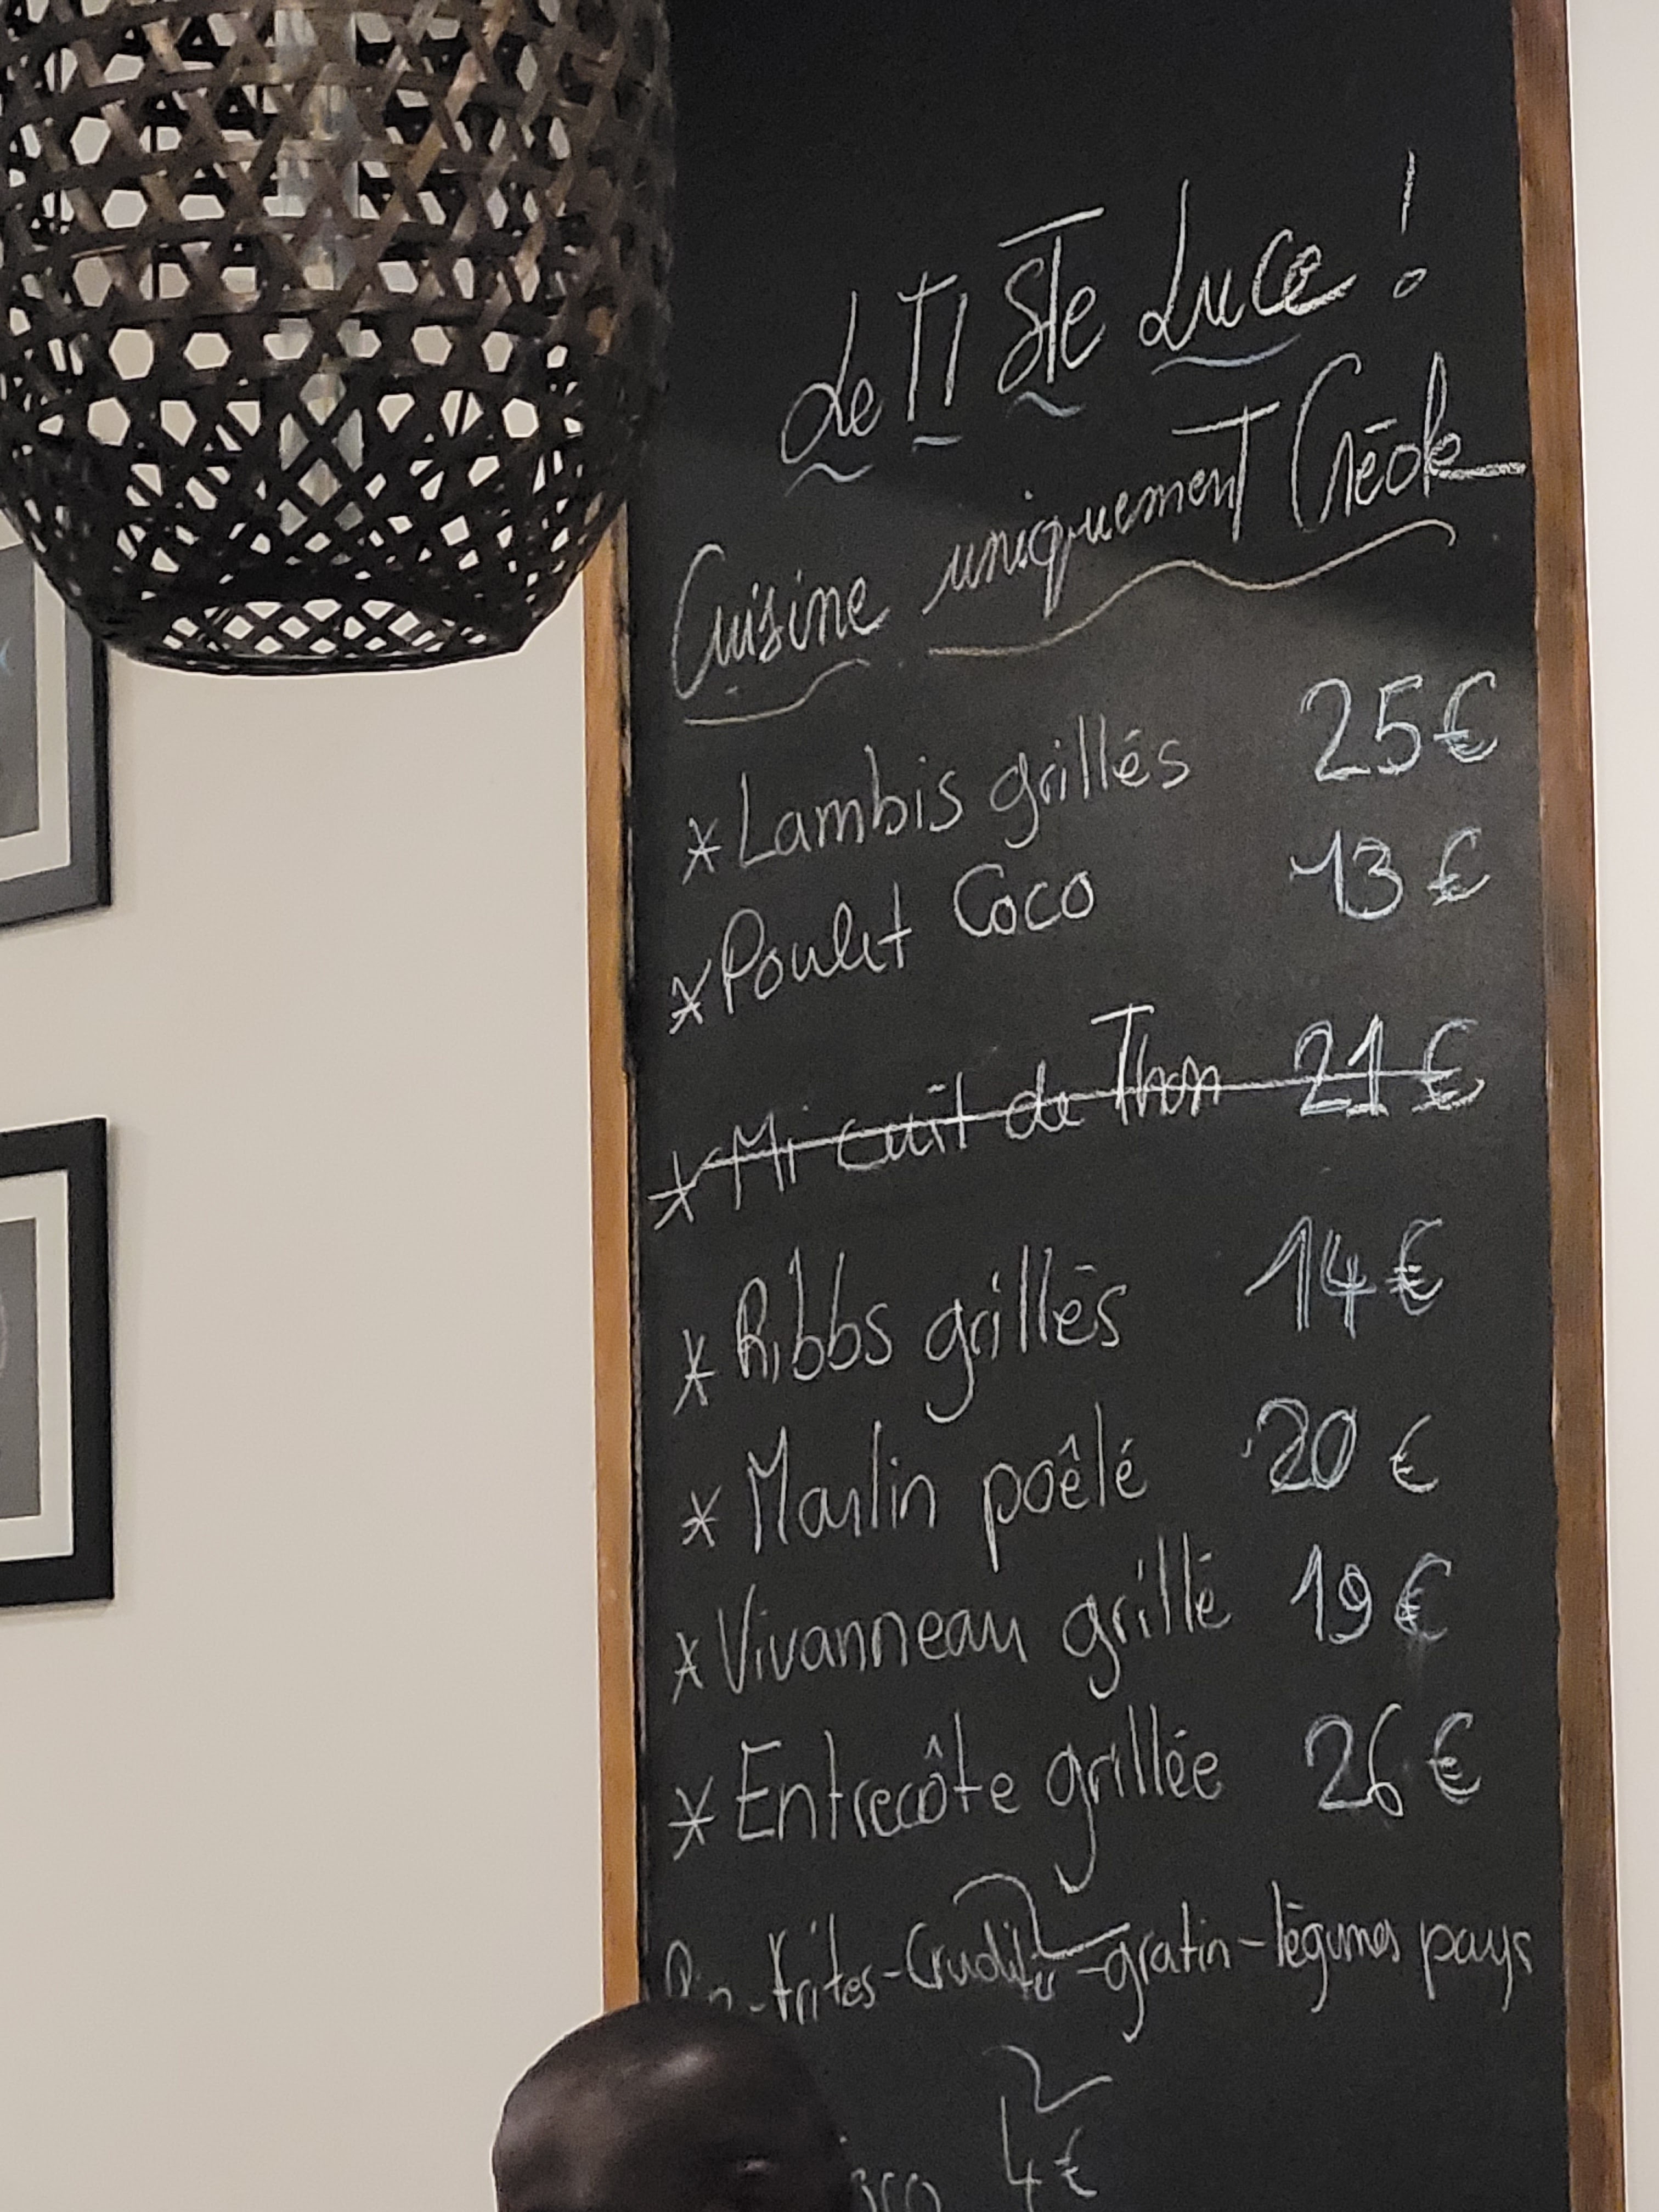 Le TI Ste Luce !
Cuisine uniquement Créole
* Lambis grillés 25€
* Poulet Coco 13 €
* Mi cuit de Thon 21 €
* Ribbs grillés 14 €
* Marlin poêlé 20 €
* Vivanneau grillé 19 €
* Entrecôte grillée 26 €
-frites-Crudités-gratin-légumes pays
4 €